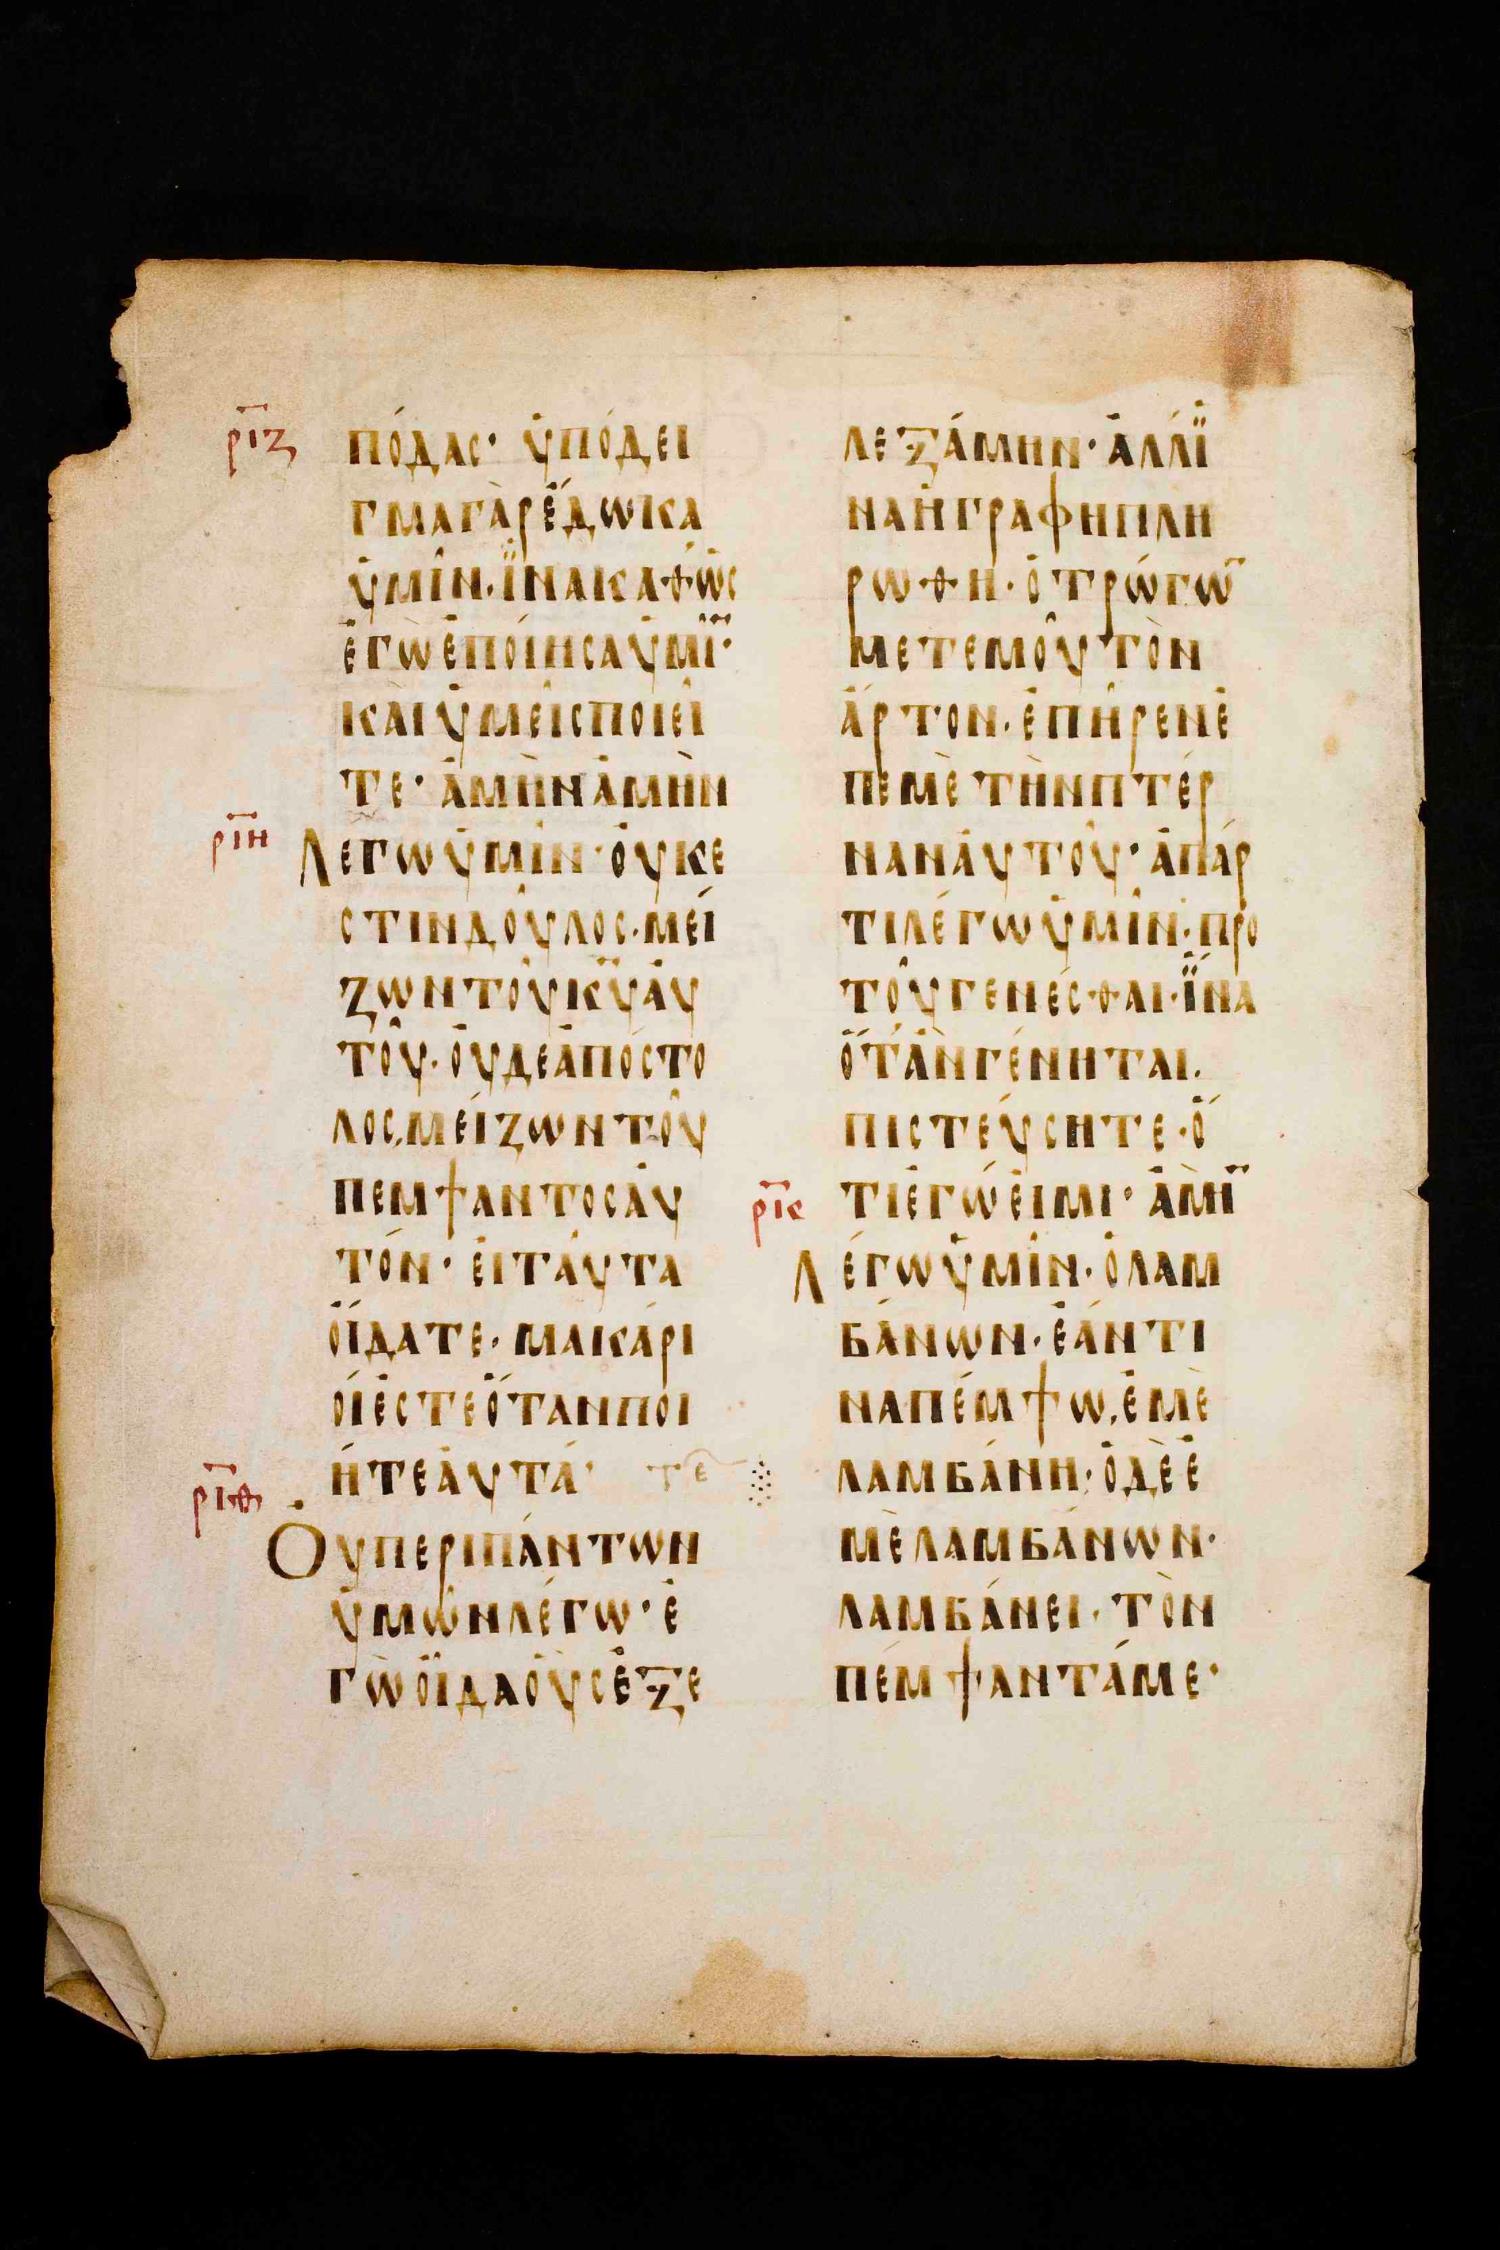 ρ̅ι̅ζ̅
πόδας· ὑπόδει
γμαγὰρἔδωκα
ὑμῖν·ἵνακαθὼς
ἐγὼἐποίησαὑμῖ̅·
καὶὑμεῖςποιεῖ
τε· ἀμὴνἀμὴν
ρ̅ι̅η̅
Λεγωὑμῖν·οὐκε
στινδοῦλος·μεί
ζωντοῦκ̅υ̅αὐ
τοῦ·οὐδεἀπόστο
λος,μείζωντοῦ
πεμψαντοσαὐ
τόν· εἰταῦτα
οἴδατε· μακάρι
οίἐστεὅτανποι
ῆτεαὐτά· τε
ρ̅ι̅θ̅
Οὐπεριπάντων
ὑμῶνλέγω· ἐ
γὼοἶδαοὓσἐξε
λεξάμην·ἀλλἵ
ναἡγραφηπλη
ρωθῆ·ὁτρώγω̅
μετεμοῦτὸν
ἄρτον·ἐπῆρενἐ
πεμὲτὴνπτέρ
ναναὐτοῦ·ἀπάρ
τιλέγωὑμῖν·προ
τοῦγενέσθαι·ἵνα
ὅτ'ἂνγένηται.
πιστεύσητε·ὅ
τιἐγώεἰμι· ἀμὴ̅
ρ̅κ̅
Λέγωὑμῖν·ὁλαμ
βάνων·ἐάντι
ναπέμψω,ἐμὲ
λαμβάνη·ὁδὲἐ
μὲλαμβάνων·
λαμβάνει·τὸν
πέμψαντάμε·